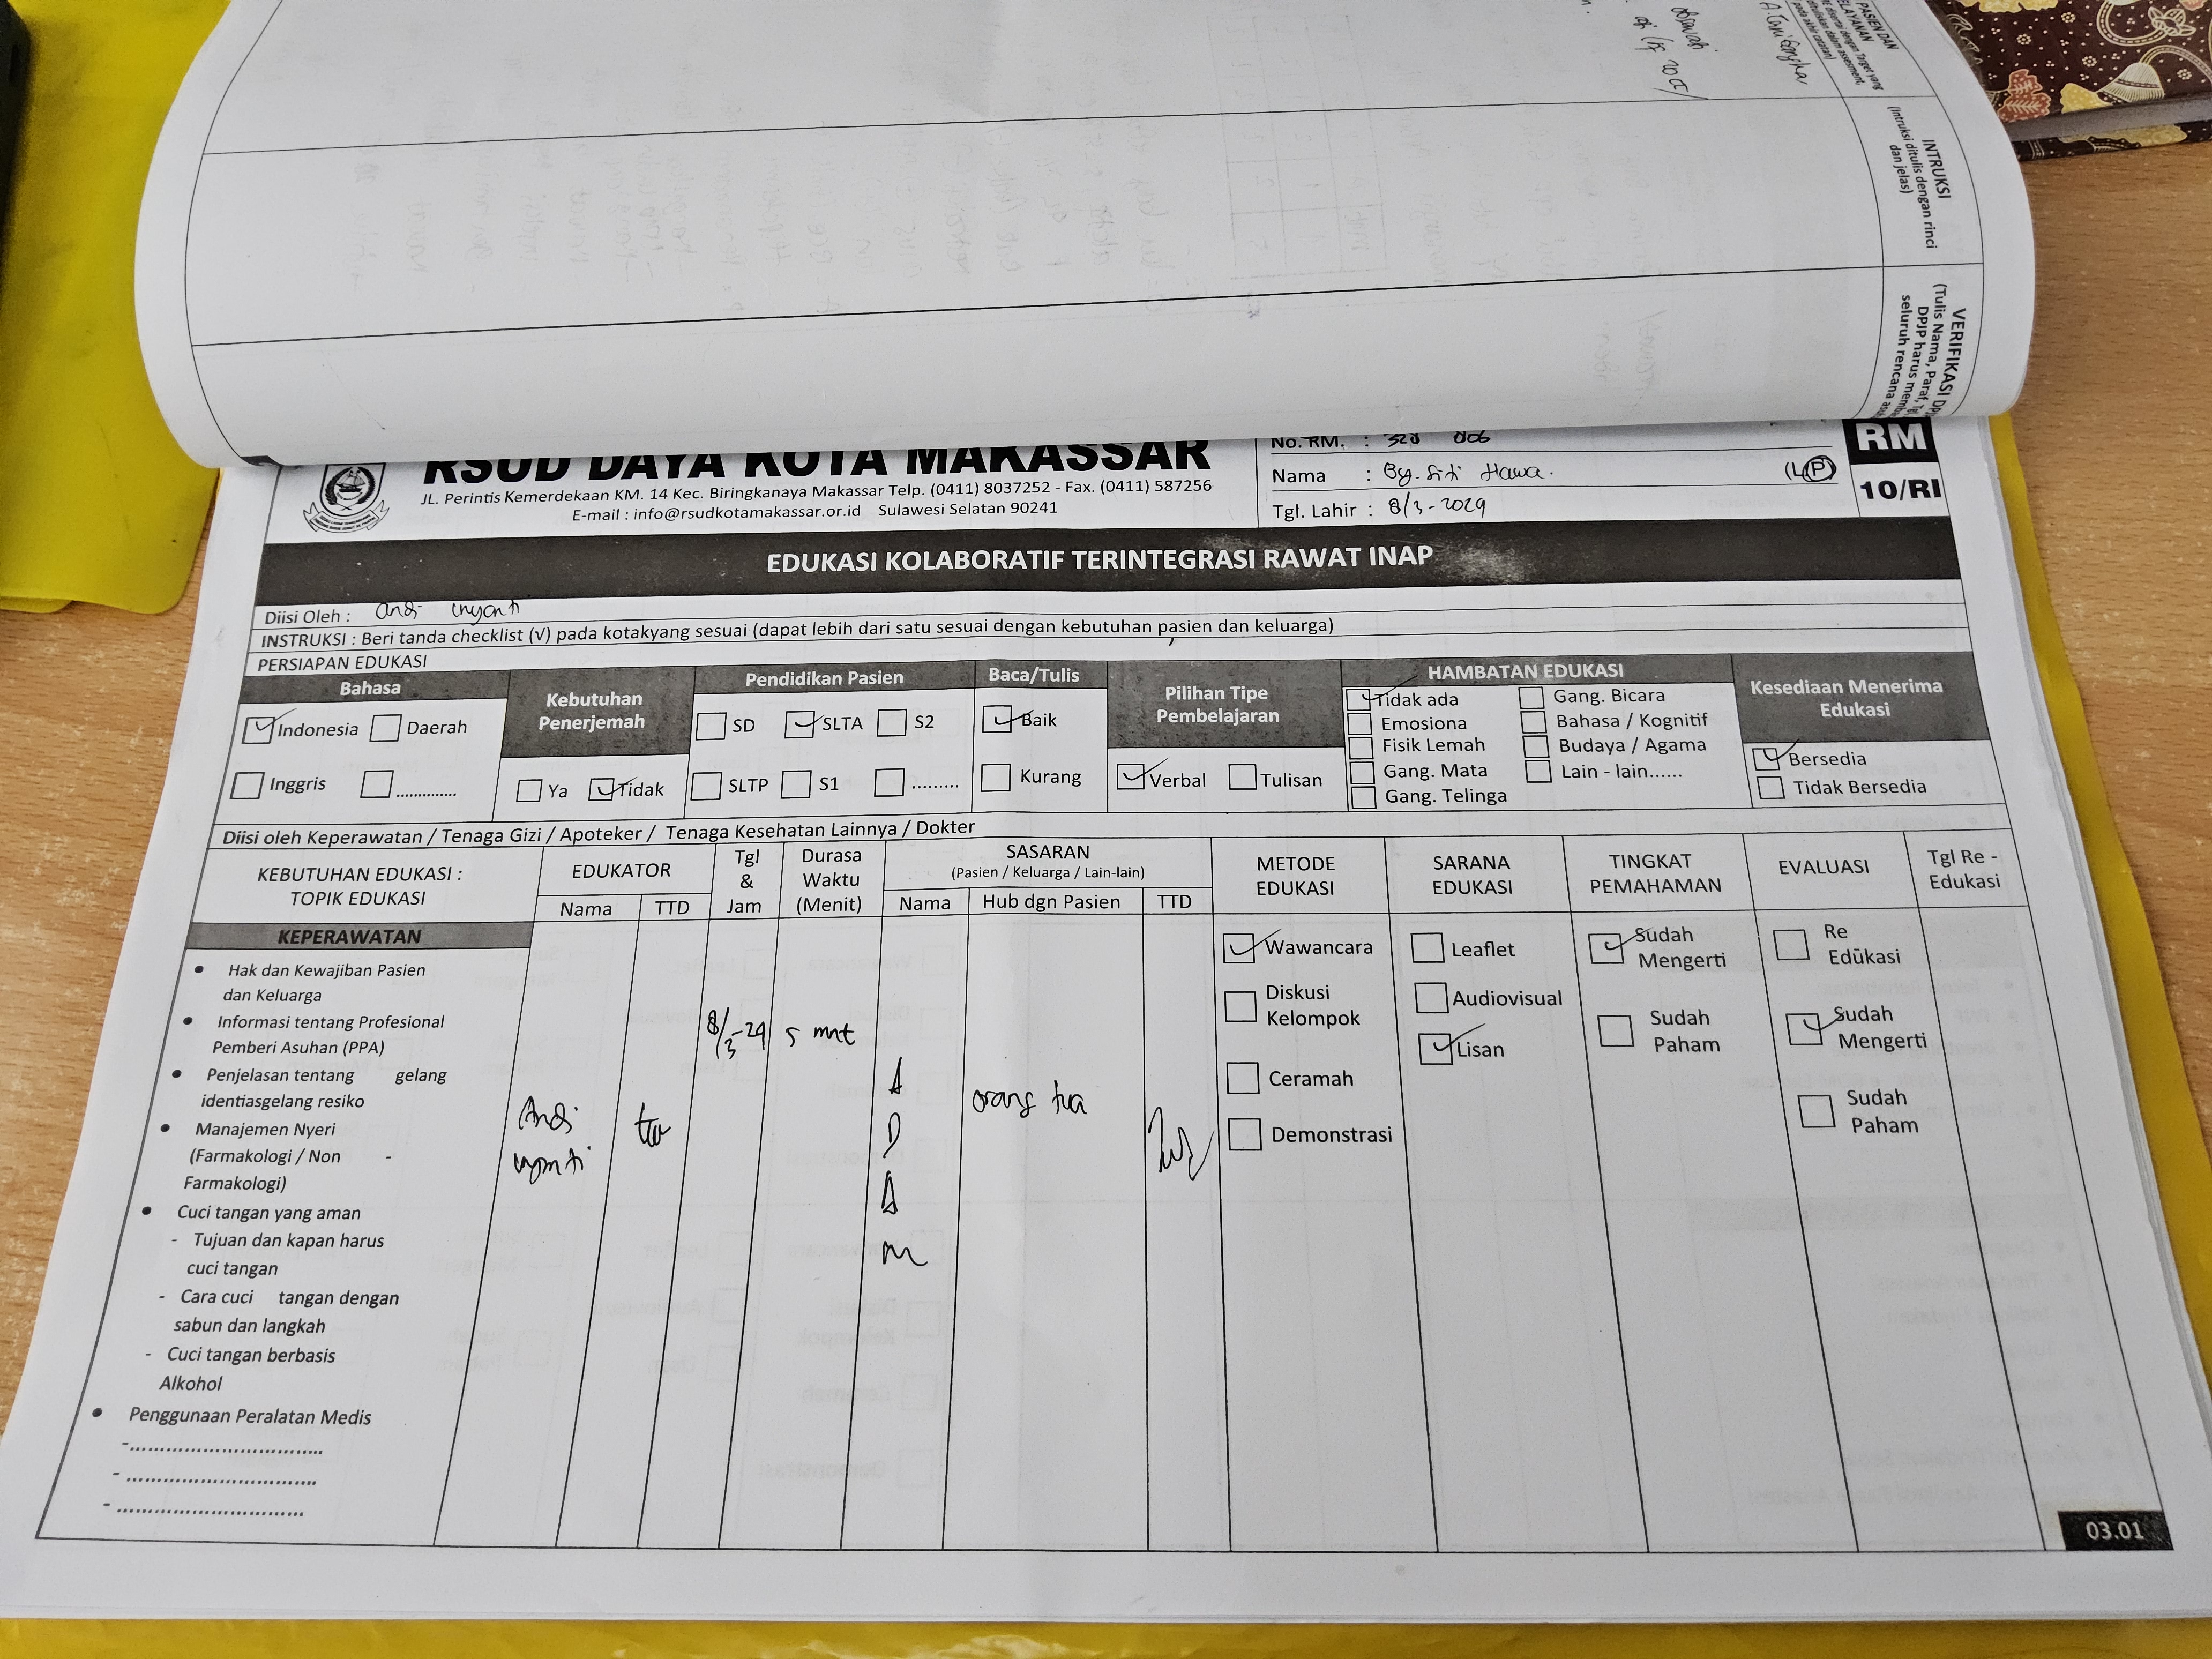 PASIEN DAN
INTRUKSI
(Intruksi ditulis dengan rinci
dan jelas)
(Tulis Nama, Paraf,
DPJP harus
seluruh rencana
RSUD DAYA KOTA MAKASSAR
JL. Perintis Kemerdekaan KM. 14 Kec. Biringkanaya Makassar Telp. (0411) 8037252 - Fax. (0411) 587256
E-mail : info@rsudkotamakassar.or.id Sulawesi Selatan 90241
No. RM. :
Nama : By. Siti Hawa. (L/P)
Tgl. Lahir : 8/3-2024
RM
10/RI
EDUKASI KOLABORATIF TERINTEGRASI RAWAT INAP
Diisi Oleh : Andi
INSTRUKSI : Beri tanda checklist (√) pada kotakyang sesuai (dapat lebih dari satu sesuai dengan kebutuhan pasien dan keluarga)
PERSIAPAN EDUKASI
Bahasa
Indonesia Daerah
Inggris ..............
Kebutuhan
Penerjemah
Ya Tidak
Pendidikan Pasien
SD SLTA S2
SLTP S1 .........
Baca/Tulis
Baik
Kurang
Pilihan Tipe
Pembelajaran
Verbal Tulisan
HAMBATAN EDUKASI
Tidak ada Gang. Bicara
Emosiona Bahasa / Kognitif
Fisik Lemah Budaya / Agama
Gang. Mata Lain - lain......
Gang. Telinga
Kesediaan Menerima
Edukasi
Bersedia
Tidak Bersedia
Diisi oleh Keperawatan / Tenaga Gizi / Apoteker / Tenaga Kesehatan Lainnya / Dokter
KEBUTUHAN EDUKASI :
TOPIK EDUKASI
EDUKATOR
Nama TTD
Tgl
&
Jam
Durasa
Waktu
(Menit)
SASARAN
(Pasien / Keluarga / Lain-lain)
Nama Hub dgn Pasien TTD
METODE
EDUKASI
SARANA
EDUKASI
TINGKAT
PEMAHAMAN
EVALUASI
Tgl Re -
Edukasi
KEPERAWATAN
• Hak dan Kewajiban Pasien
dan Keluarga
• Informasi tentang Profesional
Pemberi Asuhan (PPA)
• Penjelasan tentang gelang
identiasgelang resiko
• Manajemen Nyeri
(Farmakologi / Non -
Farmakologi)
• Cuci tangan yang aman
- Tujuan dan kapan harus
cuci tangan
- Cara cuci tangan dengan
sabun dan langkah
- Cuci tangan berbasis
Alkohol
• Penggunaan Peralatan Medis
-................................
- ...............................
- ...............................
Andi
8/3-24
5 mnt
A
D
A
M
orang tua
Wawancara
Diskusi
Kelompok
Ceramah
Demonstrasi
Leaflet
Audiovisual
Lisan
Sudah
Mengerti
Sudah
Paham
Re
Edūkasi
Sudah
Mengerti
Sudah
Paham
03.01